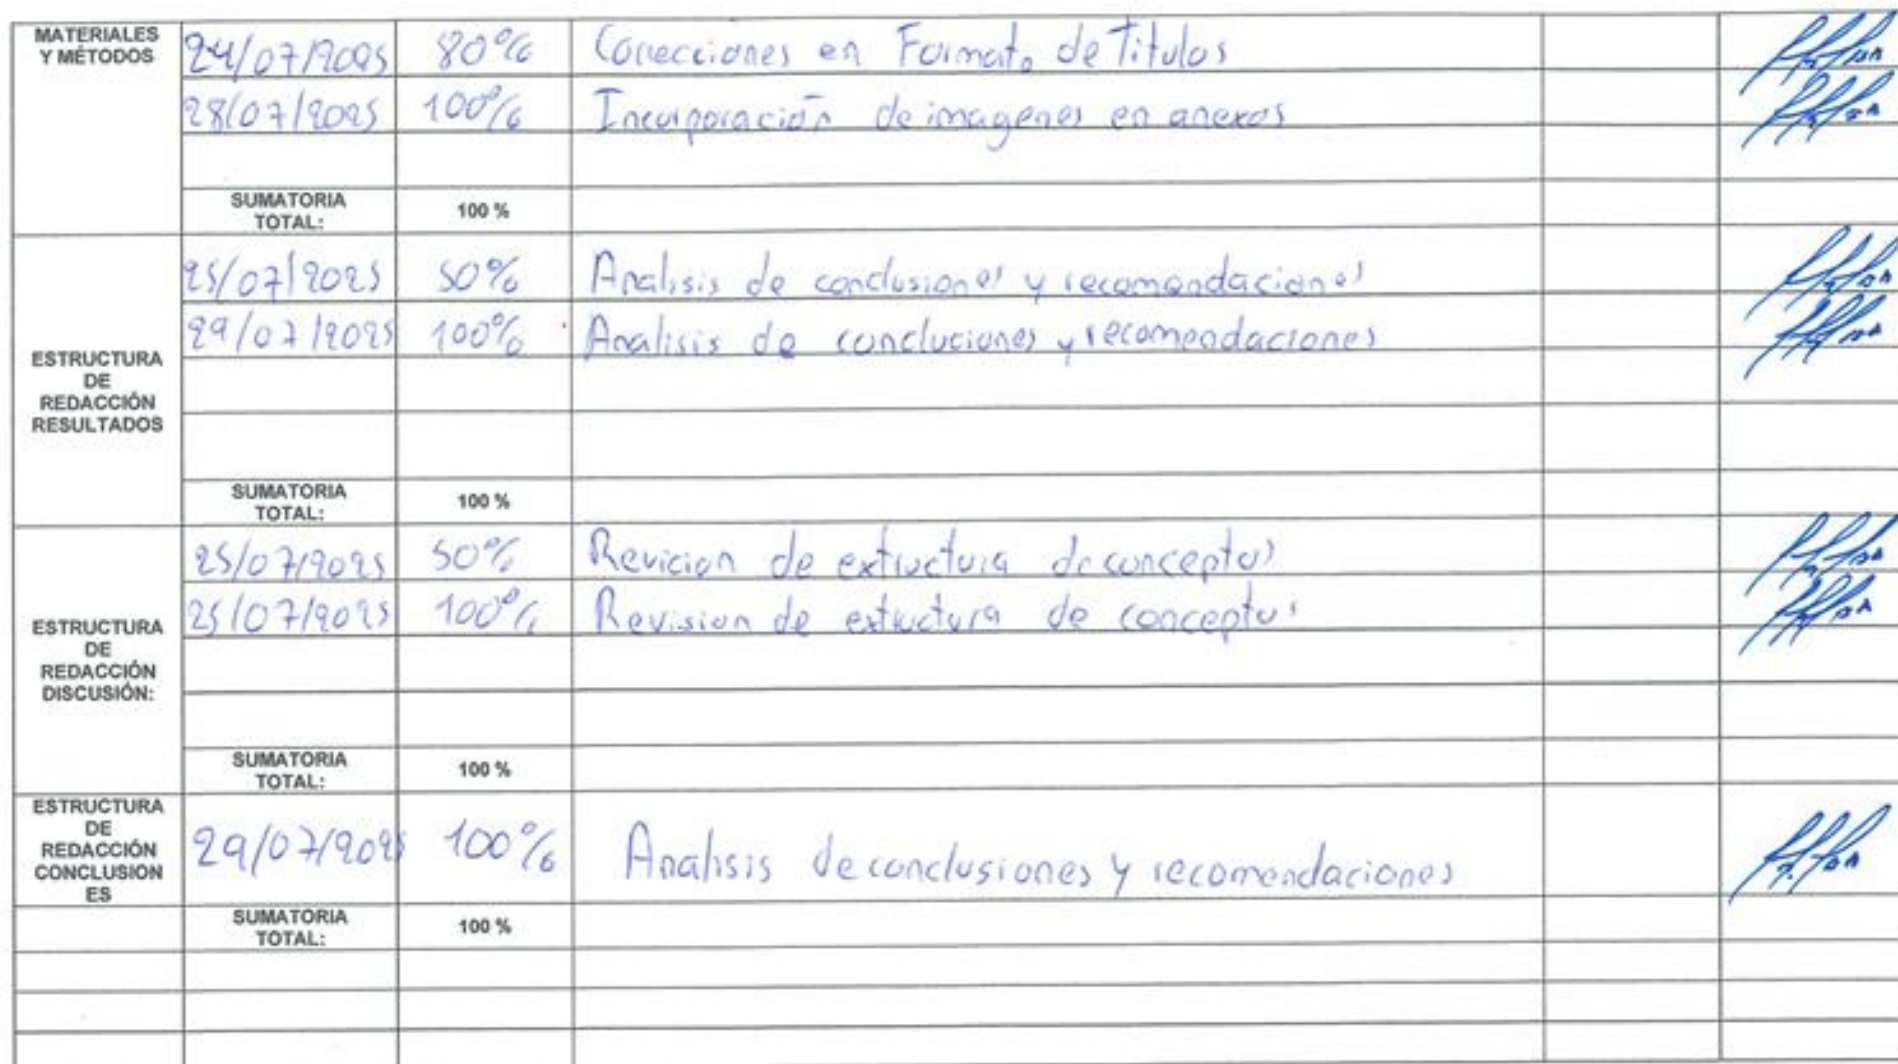 MATERIALES
Y MÉTODOS
24/07/2025 80% Correcciones en Formato de Titulos
28/07/2025 100% Incorporación de imagenes en anexos
SUMATORIA
TOTAL: 100 %
ESTRUCTURA
DE
REDACCIÓN
RESULTADOS
25/07/2025 50% Analisis de conclusiones y recomendaciones
29/07/2025 100% Analisis de concluciones y recomendaciones
SUMATORIA
TOTAL: 100 %
ESTRUCTURA
DE
REDACCIÓN
DISCUSIÓN:
25/07/2025 50% Revicion de extructura de conceptos
25/07/2025 100% Revision de estructura de conceptos
SUMATORIA
TOTAL: 100 %
ESTRUCTURA
DE
REDACCIÓN
CONCLUSION
ES
29/07/2025 100% Analisis de conclusiones y recomendaciones
SUMATORIA
TOTAL: 100 %